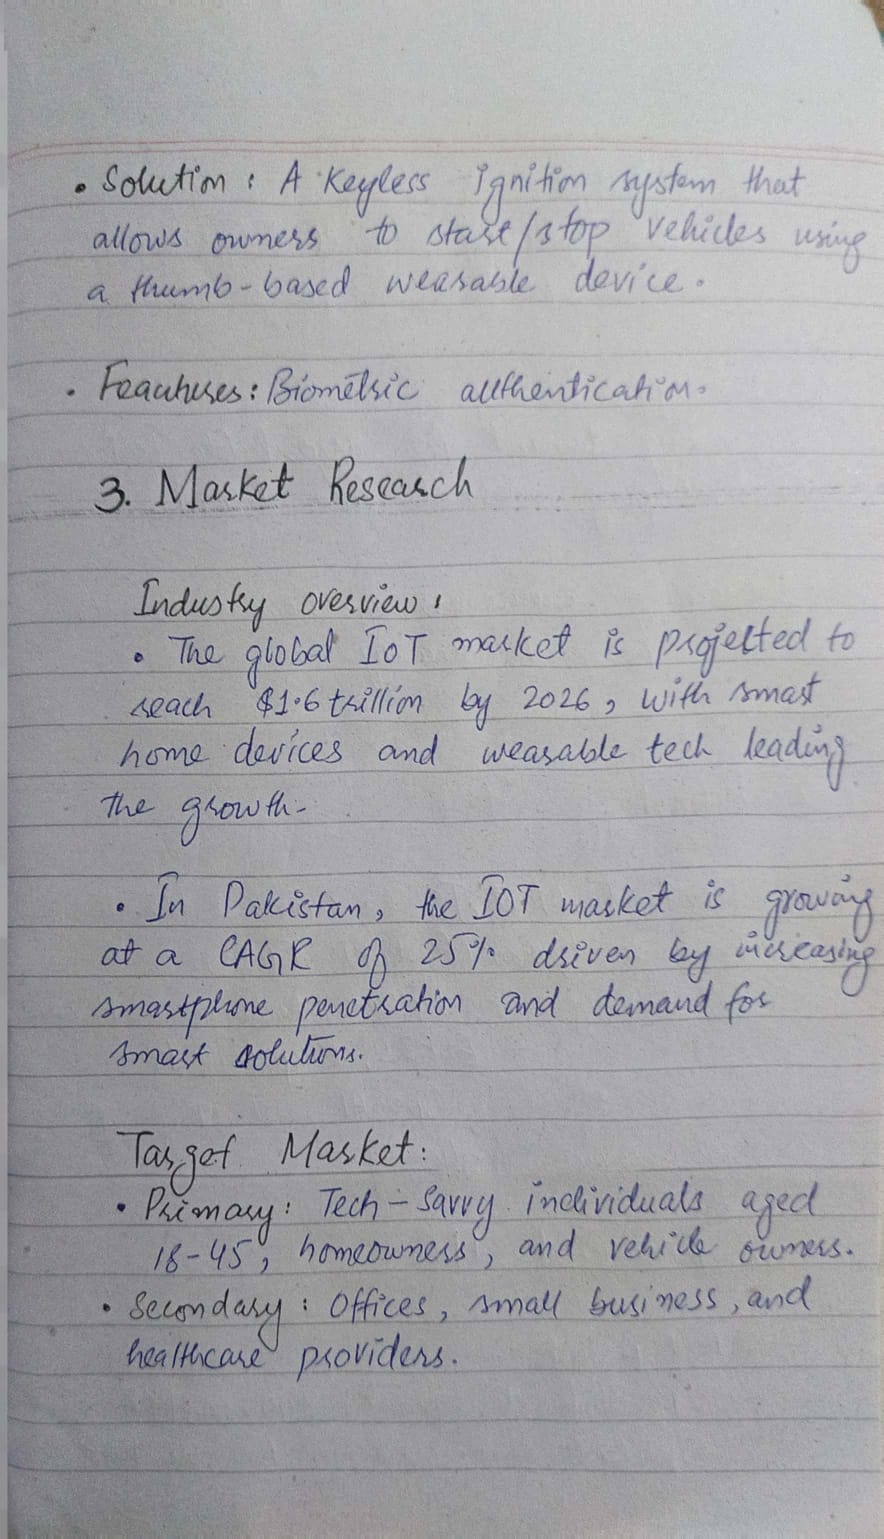 • Solution : A Keyless ignition system that
allows owners to start/stop vehicles using
a thumb-based wearable device.
• Feautures: Biometric authentication.
3. Market Research
Industry overview :
• The global IoT market is projected to
reach $1.6 trillion by 2026, with smart
home devices and wearable tech leading
the growth-
• In Pakistan, the IOT market is growing
at a CAGR of 25% driven by increasing
smartphone penetration and demand for
smart solutions.
Target Market:
• Primary: Tech-Savvy individuals aged
18-45, homeowners, and vehicle owners.
• Secondary : Offices, small business, and
healthcare providers.